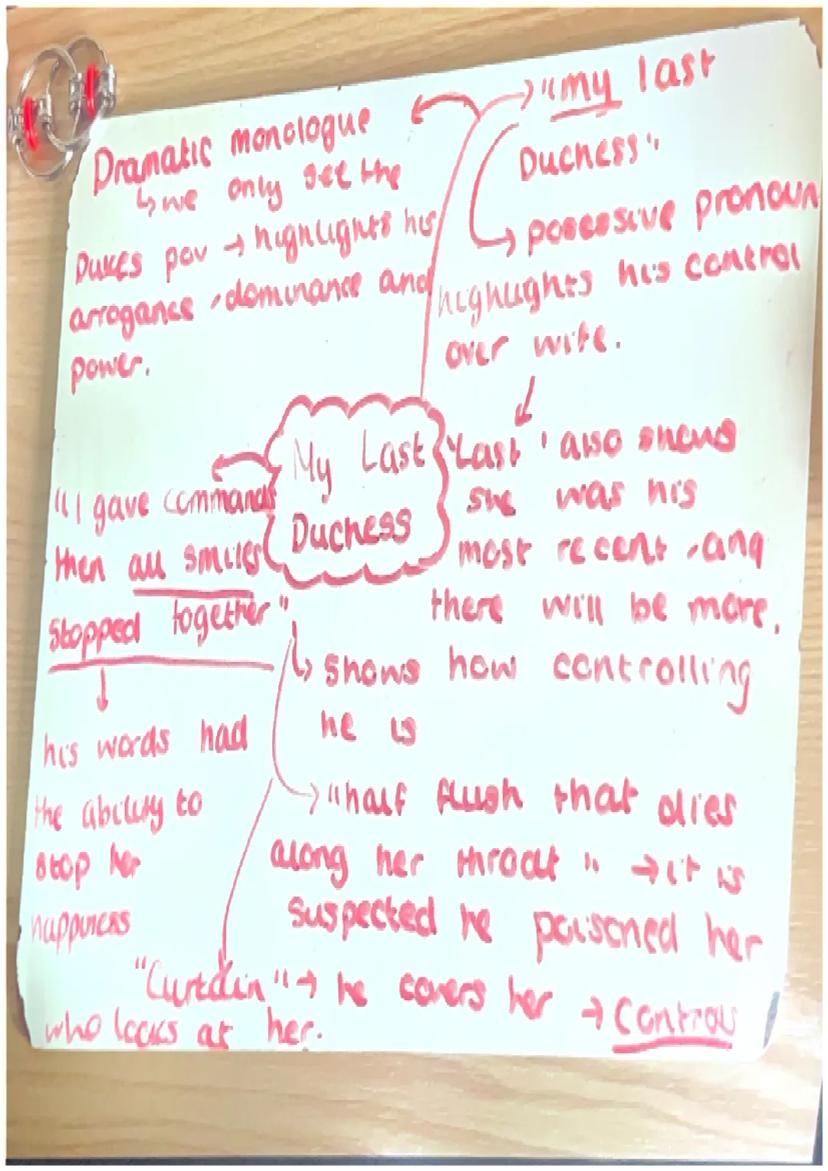 Dramatic monologue
↳ we only get the
Dukes pov → highlights his
arrogance, dominance and
power.
"my last
Duchess"
→ possessive pronoun
highlights his control
over wife.
"Last" also shows
she was his
most recent, and
there will be more.
My Last
Duchess
"I gave commands
then all smiles
stopped together"
↳ shows how controlling
he is
his words had
the ability to
stop her
happiness
→ "half flush that dies
along her throat" → it is
suspected he poisoned her
"Curtain" → he covers her → Control
who looks at her.